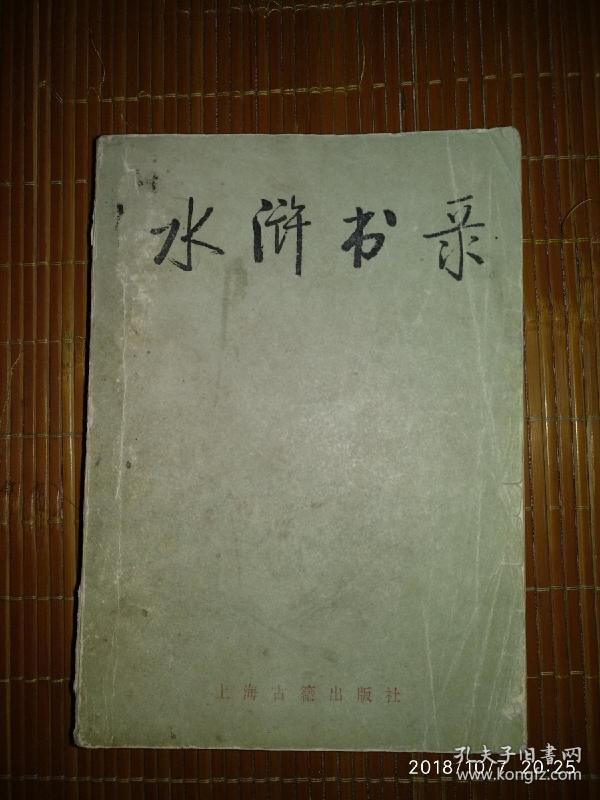 水浒书录
上海古籍出版社
孔夫子旧書网
2018/10/7 20:25
www.kongfz.com